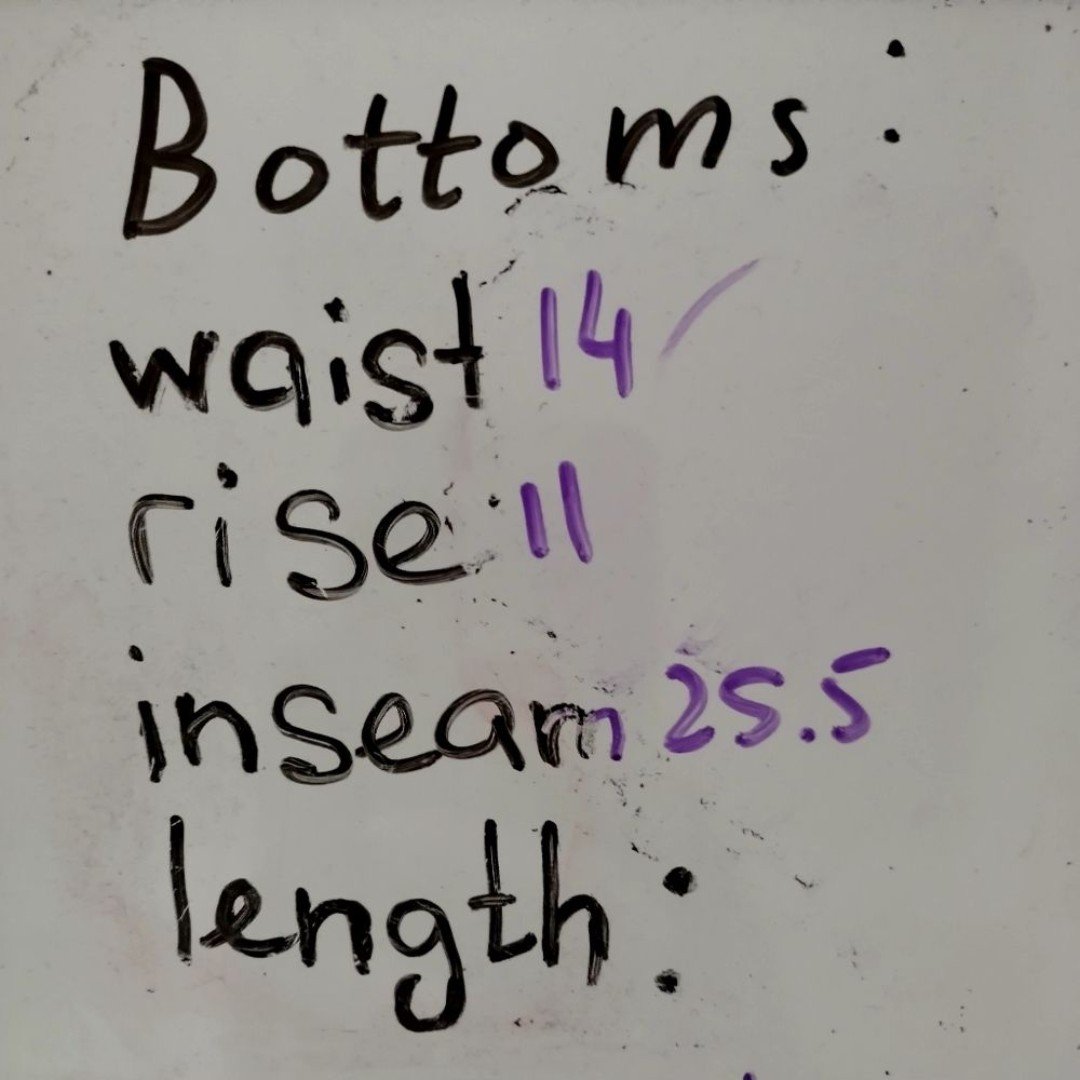 Bottoms:
waist 14
rise 11
inseam 25.5
length: